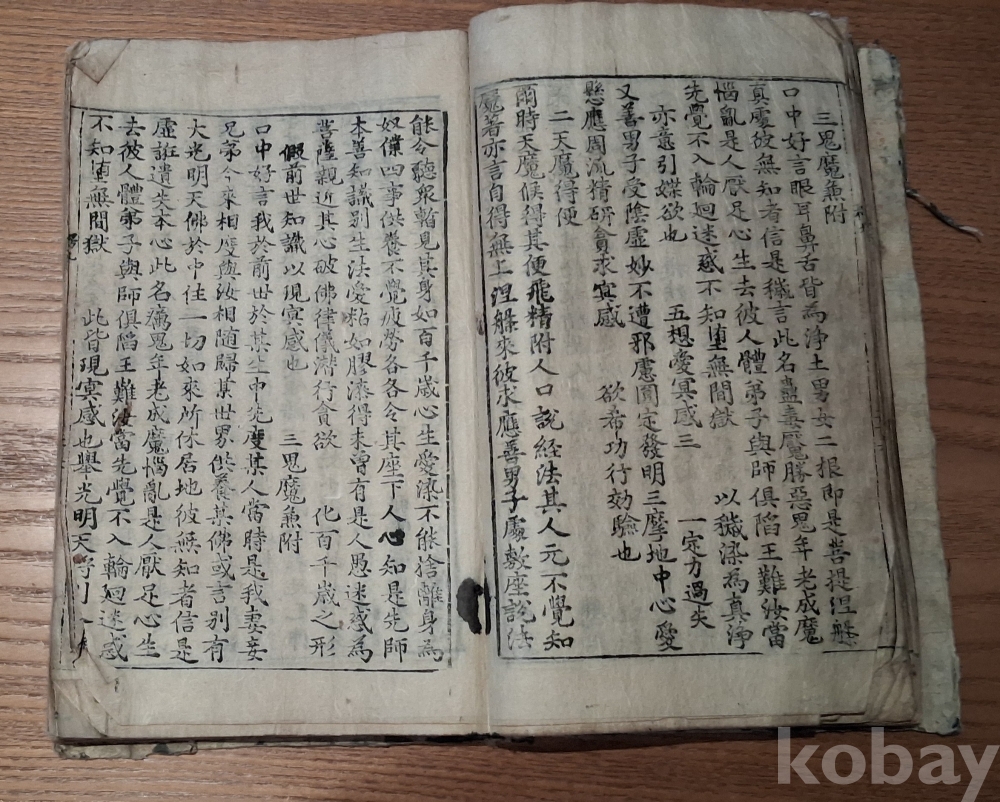 三鬼魔兼附
口中好言眼耳鼻舌皆為淨土男女二根即是菩提涅槃
真處彼無知者信是穢言此名蠱毒魘勝惡鬼年老成魔
惱亂是人厭足心生去彼人體弟子與師俱陷王難汝當
先覺不入輪迴迷惑不知墮無間獄 以穢染為真淨
亦意引媒欲也 五想愛冥感三 一定力過失
又善男子受陰虛妙不遭邪慮圓定發明三摩地中心愛
懸應周流精研貪求冥感 欲希功行効驗也
二天魔得便
爾時天魔候得其便飛精附人口說経法其人元不覺知
魔著亦言自得無上涅槃來彼求應善男子處敷座說法
能令聽衆暫見其身如百千歲心生愛染不能捨離身為
奴僕四事供養不覺疲勞各各令其座下人心知是先師
本善知識別生法愛粘如膠漆得未曾有是人愚迷惑為
菩薩親近其心破佛律儀潛行貪欲 化百千歲之形
假前世知識以現冥感也 三鬼魔兼附
口中好言我於前世於某生中先度某人當時是我妻妾
兄弟今來相度與汝相隨歸某世界供養某佛或言別有
大光明天佛於中住一切如來所休居地彼無知者信是
虛誑遺失本心此名癘鬼年老成魔惱亂是人厭足心生
去彼人體弟子與師俱陷王難汝當先覺不入輪迴迷惑
不知墮無間獄 此皆現冥感也擧光明天
kobay